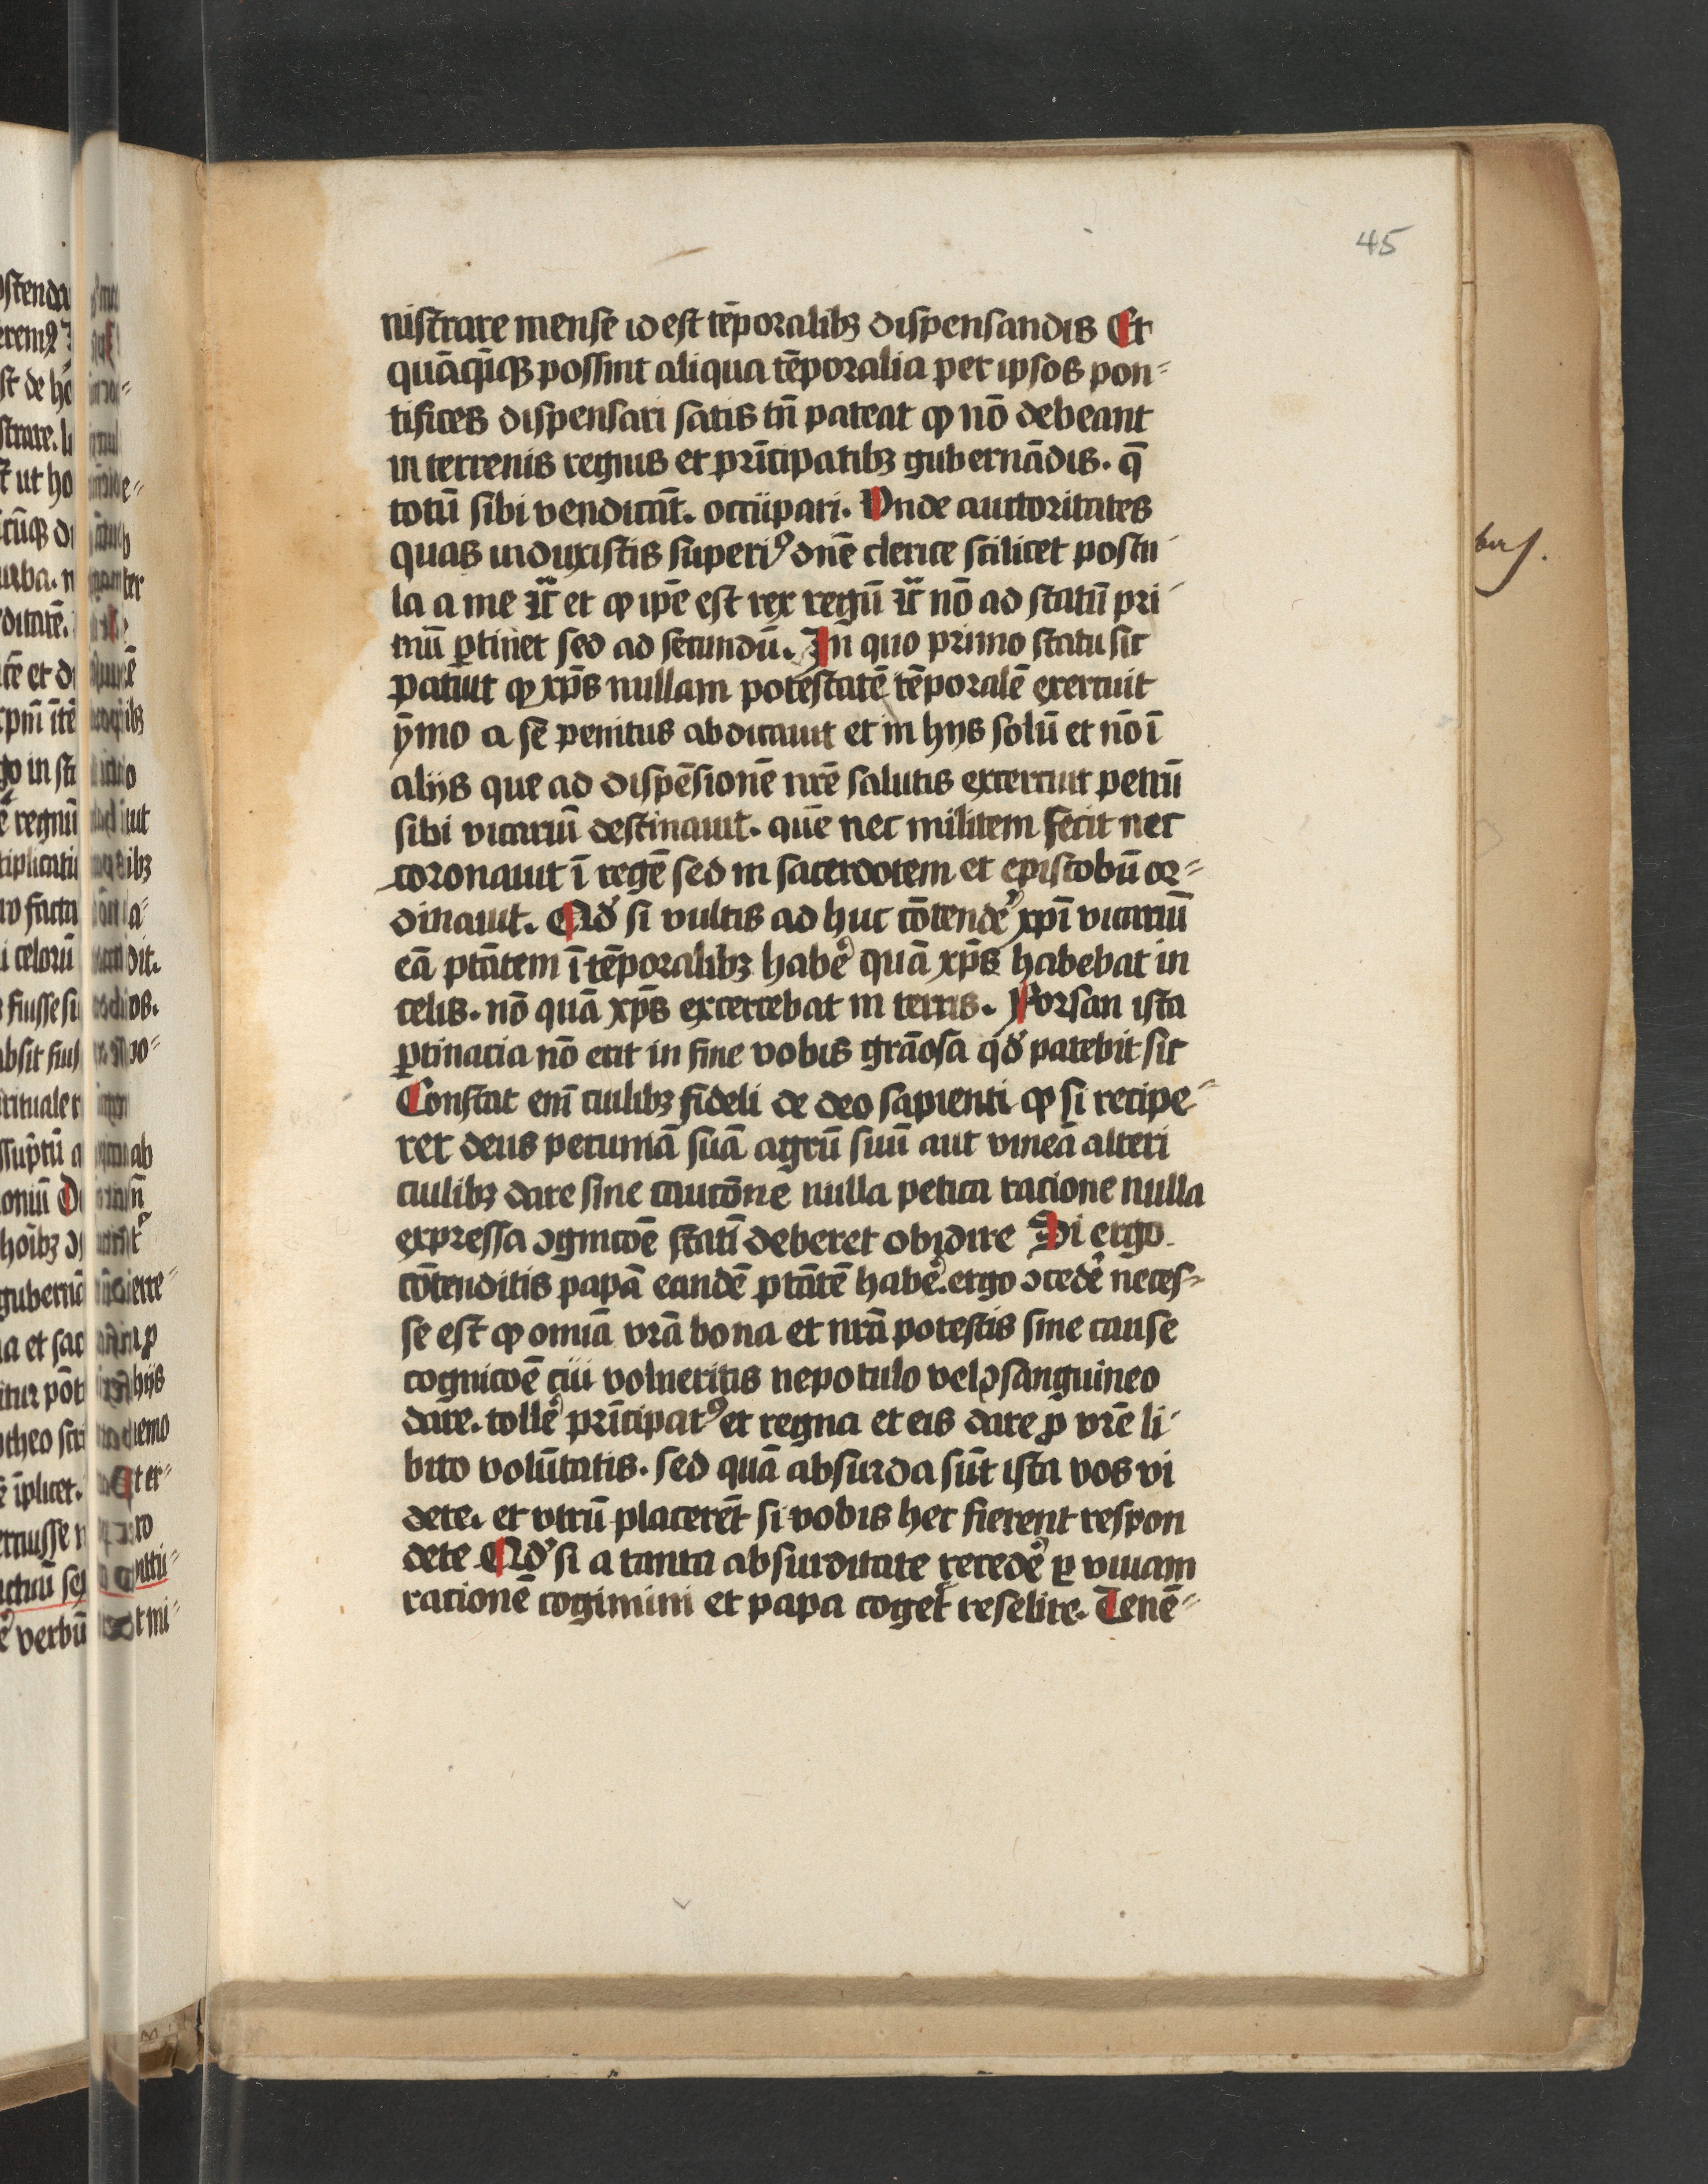 45
nistrare mense id est tēporalibꝫ dispensandis Et
quāq̄ꝫ possint aliqua tēporalia per ipsos pon⸗
tifices dispensari satis tn̄ pateat ꝙ nō debeant
in terrenis regnis et prīcipatibꝫ gubernādis. q̄
totū sibi vendicāt. occupari. Vnde auctoritates
quas induxistis superiꝰ dn̄e clerice scilicet postu
la a me ⁊c̄ et ꝙ ip̄e est rex regū ⁊c̄ nō ad statū pri
mū ꝑtinet sed ad secundū. In quo primo statu sic
patuit ꝙ xp̄s nullam potestatē tēporalē exercuit
ẏmo a se penitus abdicauit et in hijs solū et nō ī
alijs que ad dispēsionē nr̄e salutis excercuit petrū
sibi vicariū destinauit. quē nec militem fecit nec
coronauit ī regē sed in sacerdotem et episcobū or⸗
dinauit. Qd̓ si vultis ad huc cōtendē̓ xp̄i vicariū
eā ptātem ī tēporalibꝫ habē̓ quā xp̄s habebat in
celis. nō quā xp̄s excercebat in terris. Forsan ista
ꝑtinacia nō erit in fine vobis grāosa qd̓ patebit sic
Constat em̄ cuilibꝫ fideli de deo sapienti ꝙ si recipe⸗
ret deus pecuniā suā agrū suū aut vineā alteri
cuilibꝫ dare sine cautōne nulla petita racione nulla
expressa ↄgnicōe statī deberet obidire Si ergo
cōtenditis papā eandē ptātē habē̓. ergo ↄcedē̓ neces⸗
se est ꝙ omīa vr̄a bona et nr̄a potestis sine cause
cognicōe cui volueritis nepotulo vel ↄsanguineo
dare. tollē̓ prīcipatꝰ et regna et eis dare ꝓ vr̄e li⸗
bito volūtatis. sed quā absurda sūt ista vos vi
dete. et vtrū placerēt si vobis hec fierent respon
dete Qd̓ si a tanta absurditate recedē̓ ꝑ viuam
racionē cogimini et papa coget̓ reselire. Tenē⸗